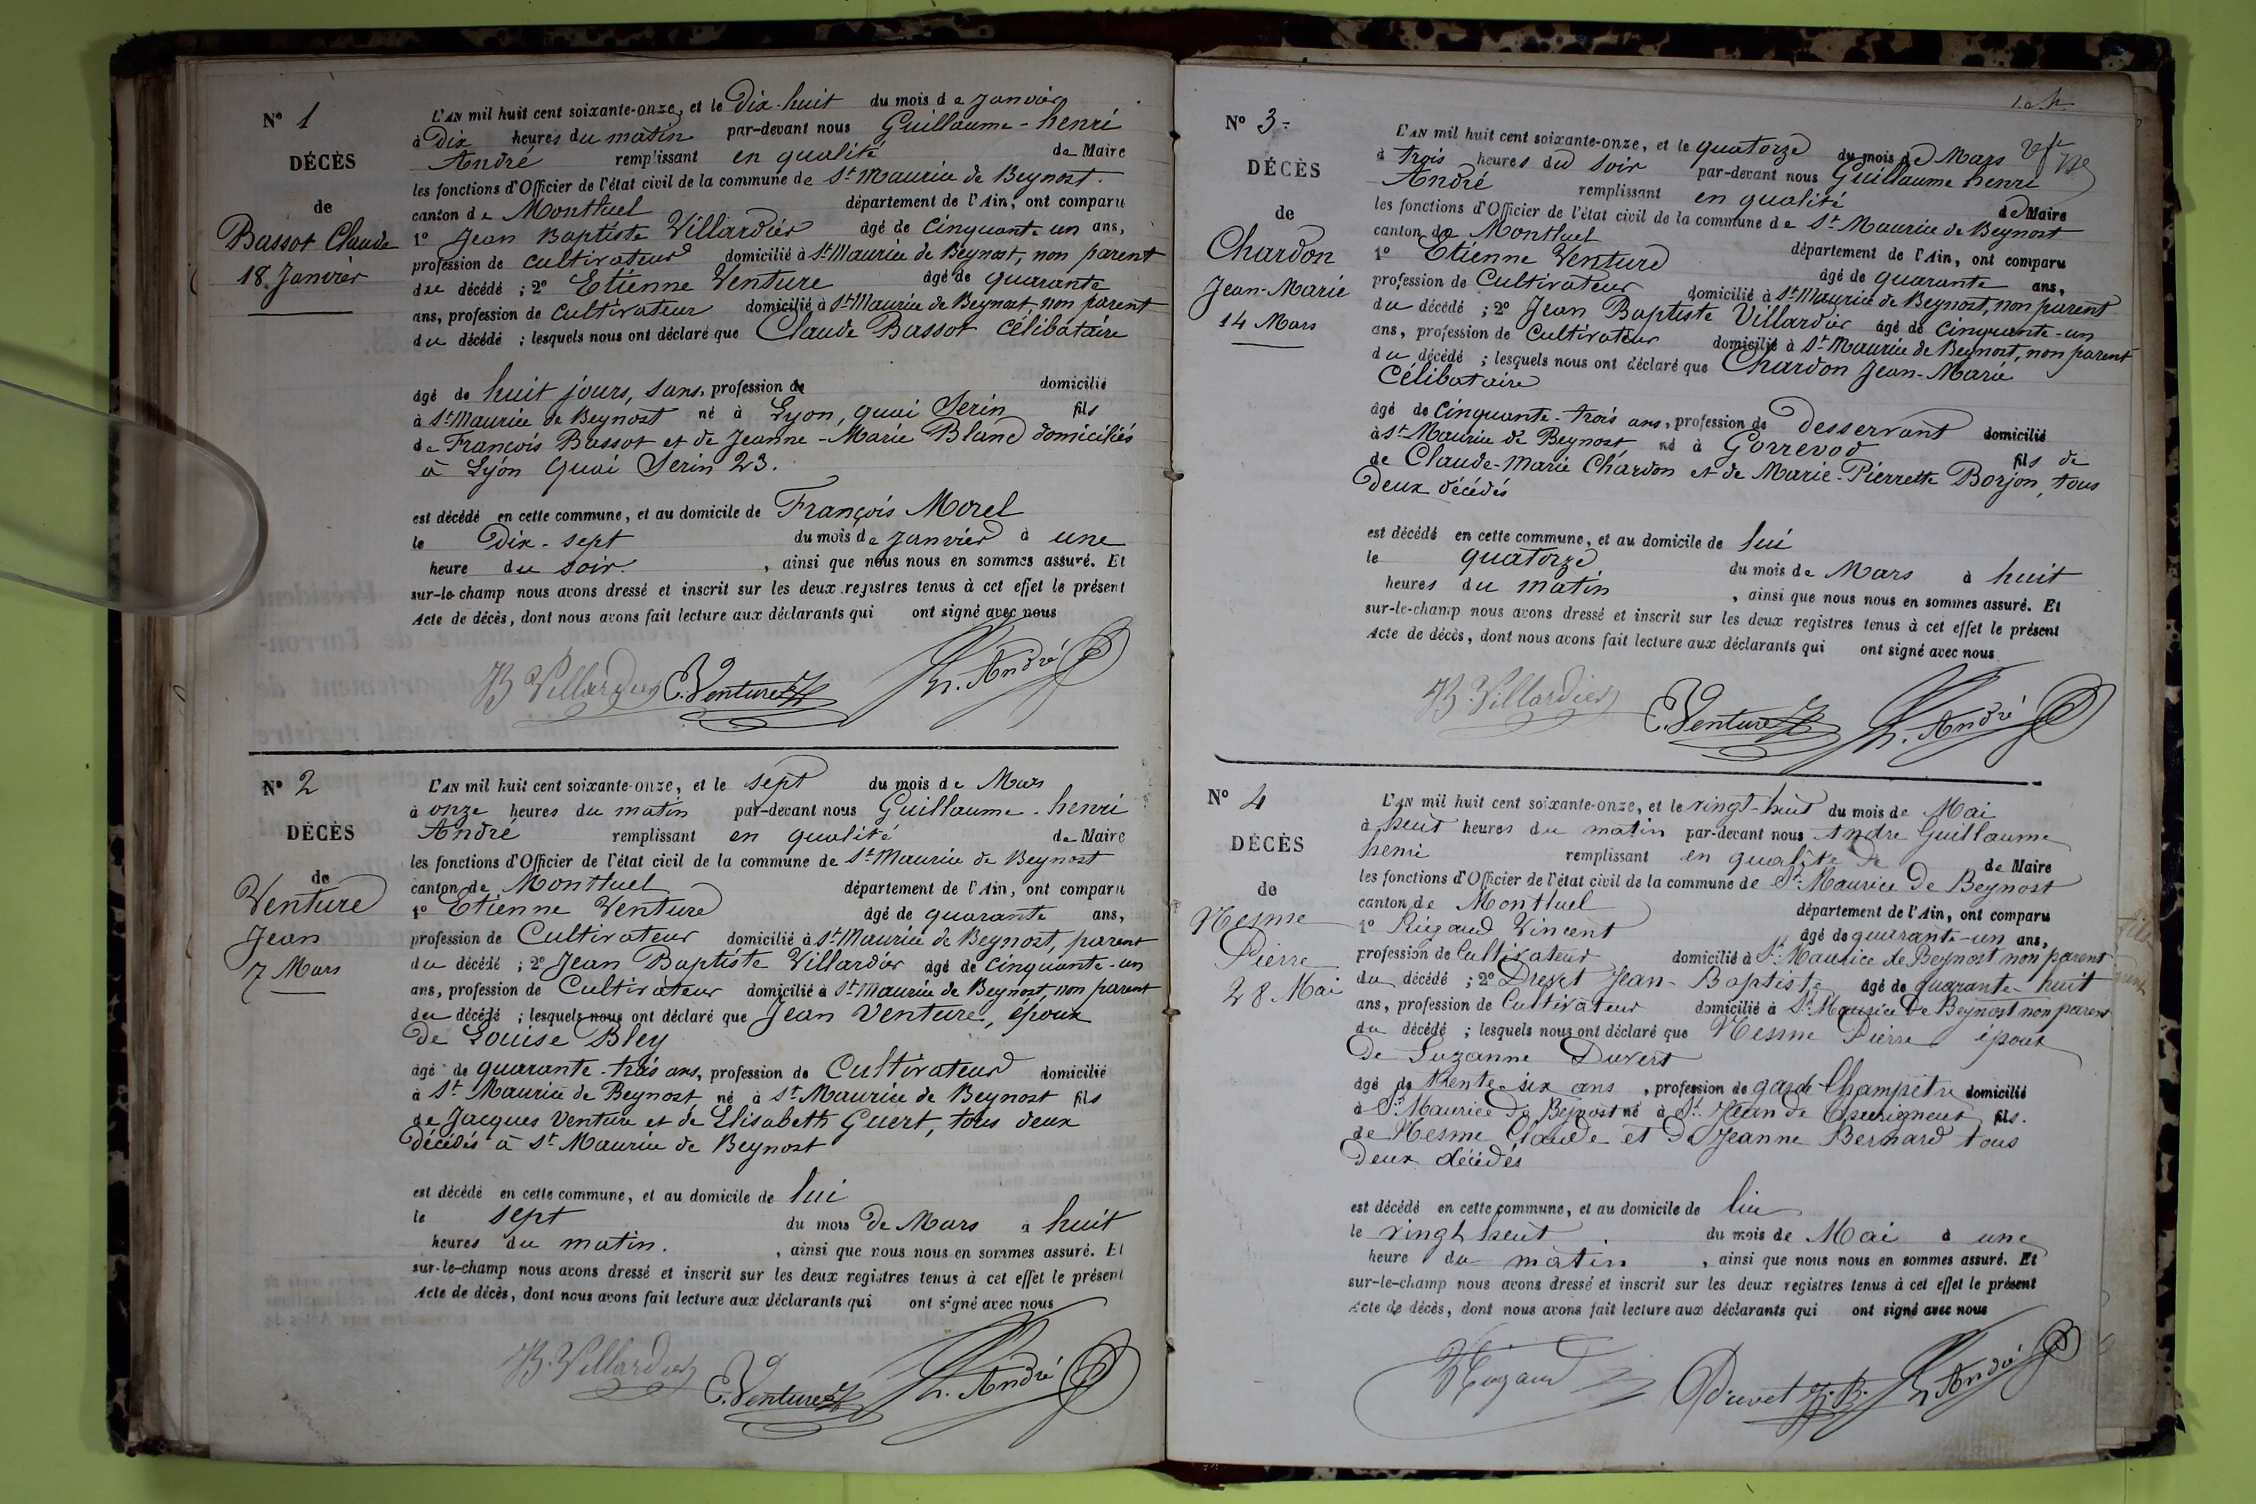 N° 1
DÉCÈS
de
Bassot Claude
18 Janvier
L'AN mil huit cent soixante-onze, et le Dix-huit du mois de Janvier
à Dix heures du matin par-devant nous Guillaume-henri
André remplissant en qualité de Maire
les fonctions d'Officier de l'état civil de la commune de St Maurice de Beynost.
canton de Montluel département de l'Ain, ont comparu
1° Jean Baptiste Villardier âgé de Cinquante un ans,
profession de cultivateur domicilié à St Maurice de Beynost, non parent
du décédé ; 2° Etienne Venture âgé de quarante
ans, profession de Cultivateur domicilié à St Maurice de Beynost, non parent
du décédé ; lesquels nous ont déclaré que Claude Bassot Célibataire
âgé de huit jours, sans, profession de domicilié
à St Maurice de Beynost né à Lyon, quai Serin fils
de François Bassot et de Jeanne-Marie Blanc domiciliés
à Lyon Quai Serin 23.
est décédé en cette commune, et au domicile de François Morel
le Dix-sept du mois de Janvier à une
heure du soir. , ainsi que nous nous en sommes assuré. Et
sur-le-champ nous avons dressé et inscrit sur les deux registres tenus à cet effet le présent
Acte de décès, dont nous avons fait lecture aux déclarants qui ont signé avec nous
JB Villardier E. Venture h. André
N° 2
DÉCÈS
de
Venture
Jean
7 Mars
L'AN mil huit cent soixante-onze, et le sept du mois de Mars
à onze heures du matin par-devant nous Guillaume-henri
André remplissant en qualité de Maire
les fonctions d'Officier de l'état civil de la commune de St Maurice de Beynost
canton de Montluel département de l'Ain, ont comparu
1° Etienne Venture âgé de quarante ans,
profession de Cultivateur domicilié à St Maurice de Beynost, parent
du décédé ; 2° Jean Baptiste Villardier âgé de Cinquante-un
ans, profession de Cultivateur domicilié à St Maurice de Beynost, non parent
du décédé ; lesquels nous ont déclaré que Jean Venture, époux
de Louise Bley
âgé de quarante-trois ans, profession de Cultivateur domicilié
à St Maurice de Beynost né à St Maurice de Beynost fils
de Jacques Venture et de Elisabeth Guert, tous deux
décédés à St Maurice de Beynost
est décédé en cette commune, et au domicile de lui
le sept du mois de Mars à huit
heures du matin. , ainsi que nous nous en sommes assuré. Et
sur-le-champ nous avons dressé et inscrit sur les deux registres tenus à cet effet le présent
Acte de décès, dont nous avons fait lecture aux déclarants qui ont signé avec nous
JB. Villardier E. Venture h. André
N° 3
DÉCÈS
de
Chardon
Jean-Marie
14 Mars
L'AN mil huit cent soixante-onze, et le quatorze du mois de Mars
à trois heures du soir par-devant nous Guillaume henri
André remplissant en qualité de Maire
les fonctions d'Officier de l'état civil de la commune de St Maurice de Beynost
canton de Montluel département de l'Ain, ont comparu
1° Etienne Venture âgé de quarante ans,
profession de Cultivateur domicilié à St Maurice de Beynost, non parent
du décédé ; 2° Jean Baptiste Villardier âgé de cinquante-un
ans, profession de Cultivateur domicilié à St Maurice de Beynost, non parent
du décédé ; lesquels nous ont déclaré que Chardon Jean-Marie
Célibataire
âgé de Cinquante-trois ans, profession de Desservant domicilié
à St Maurice de Beynost né à Gorrevod fils de
de Claude-Marie Chardon et de Marie-Pierrette Borjon, tous
deux décédés
est décédé en cette commune, et au domicile de lui
le quatorze du mois de Mars à huit
heures du matin , ainsi que nous nous en sommes assuré. Et
sur-le-champ nous avons dressé et inscrit sur les deux registres tenus à cet effet le présent
Acte de décès, dont nous avons fait lecture aux déclarants qui ont signé avec nous
JB. Villardier E. Venture h. André
N° 4
DÉCÈS
de
Nesme
Pierre
28 Mai
L'AN mil huit cent soixante-onze, et le vingt-huit du mois de Mai
à huit heures du matin par-devant nous André Guillaume
henri remplissant en qualité de de Maire
les fonctions d'Officier de l'état civil de la commune de St Maurice de Beynost
canton de Montluel département de l'Ain, ont comparu
1° Rigaud Vincent âgé de quarante-un ans,
profession de Cultivateur domicilié à St Maurice de Beynost non parent
du décédé ; 2° Drevet Jean-Baptiste âgé de quarante-huit
ans, profession de Cultivateur domicilié à St Maurice de Beynost non parent
du décédé ; lesquels nous ont déclaré que Nesme Pierre époux
de Suzanne Duvert
âgé de trente-six ans , profession de garde Champêtre domicilié
à St Maurice de Beynost né à St Jean de fils.
de Nesme Claude et de Jeanne Bernard tous
deux décédés
est décédé en cette commune, et au domicile de lui
le vingt huit du mois de Mai à une
heure du matin , ainsi que nous nous en sommes assuré. Et
sur-le-champ nous avons dressé et inscrit sur les deux registres tenus à cet effet le présent
Acte de décès, dont nous avons fait lecture aux déclarants qui ont signé avec nous
Rigaud Drevet J.B. h. André